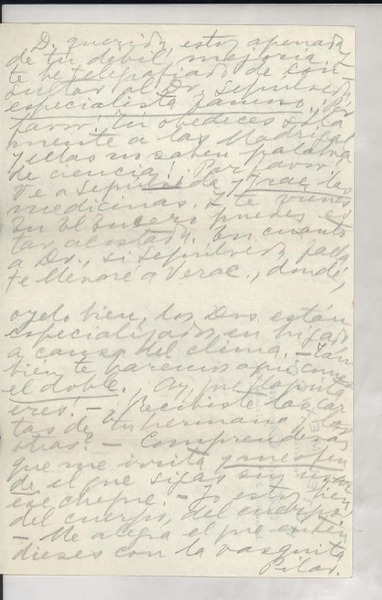 D. querida, estoy apenada
de tu débil mejoría. Y
te he telegrafiado de con-
sultar al Dr. Sepulveda,
especialista famoso. Por
favor! Tú obedeces sola
mente a las Madrigal
y ellas no saben palabra
de ciencia! Por favor!
Ve a Sepulveda y trae las
medicinas. Y te vienes
En El Encero puedes es
tar acostada. En cuanto
a Dr., si Sepulveda falla
te llevaré a Verac., donde,
oyelo bien, los Drs. están
especializados en hígado
a causa del clima. - Tam
bien te haremos aquí comer
el doble. Ay, que tontita
eres! - Recibiste las car
tas de tu hermana y las
otras? - Comprenderás
que me irrita y me ofen
de el que sigas sin
ese cheque. - Yo estoy bien
del cuerpo, del cuerpo.
- Me alegra el que enten
dieses con la vasquita
Pilar.